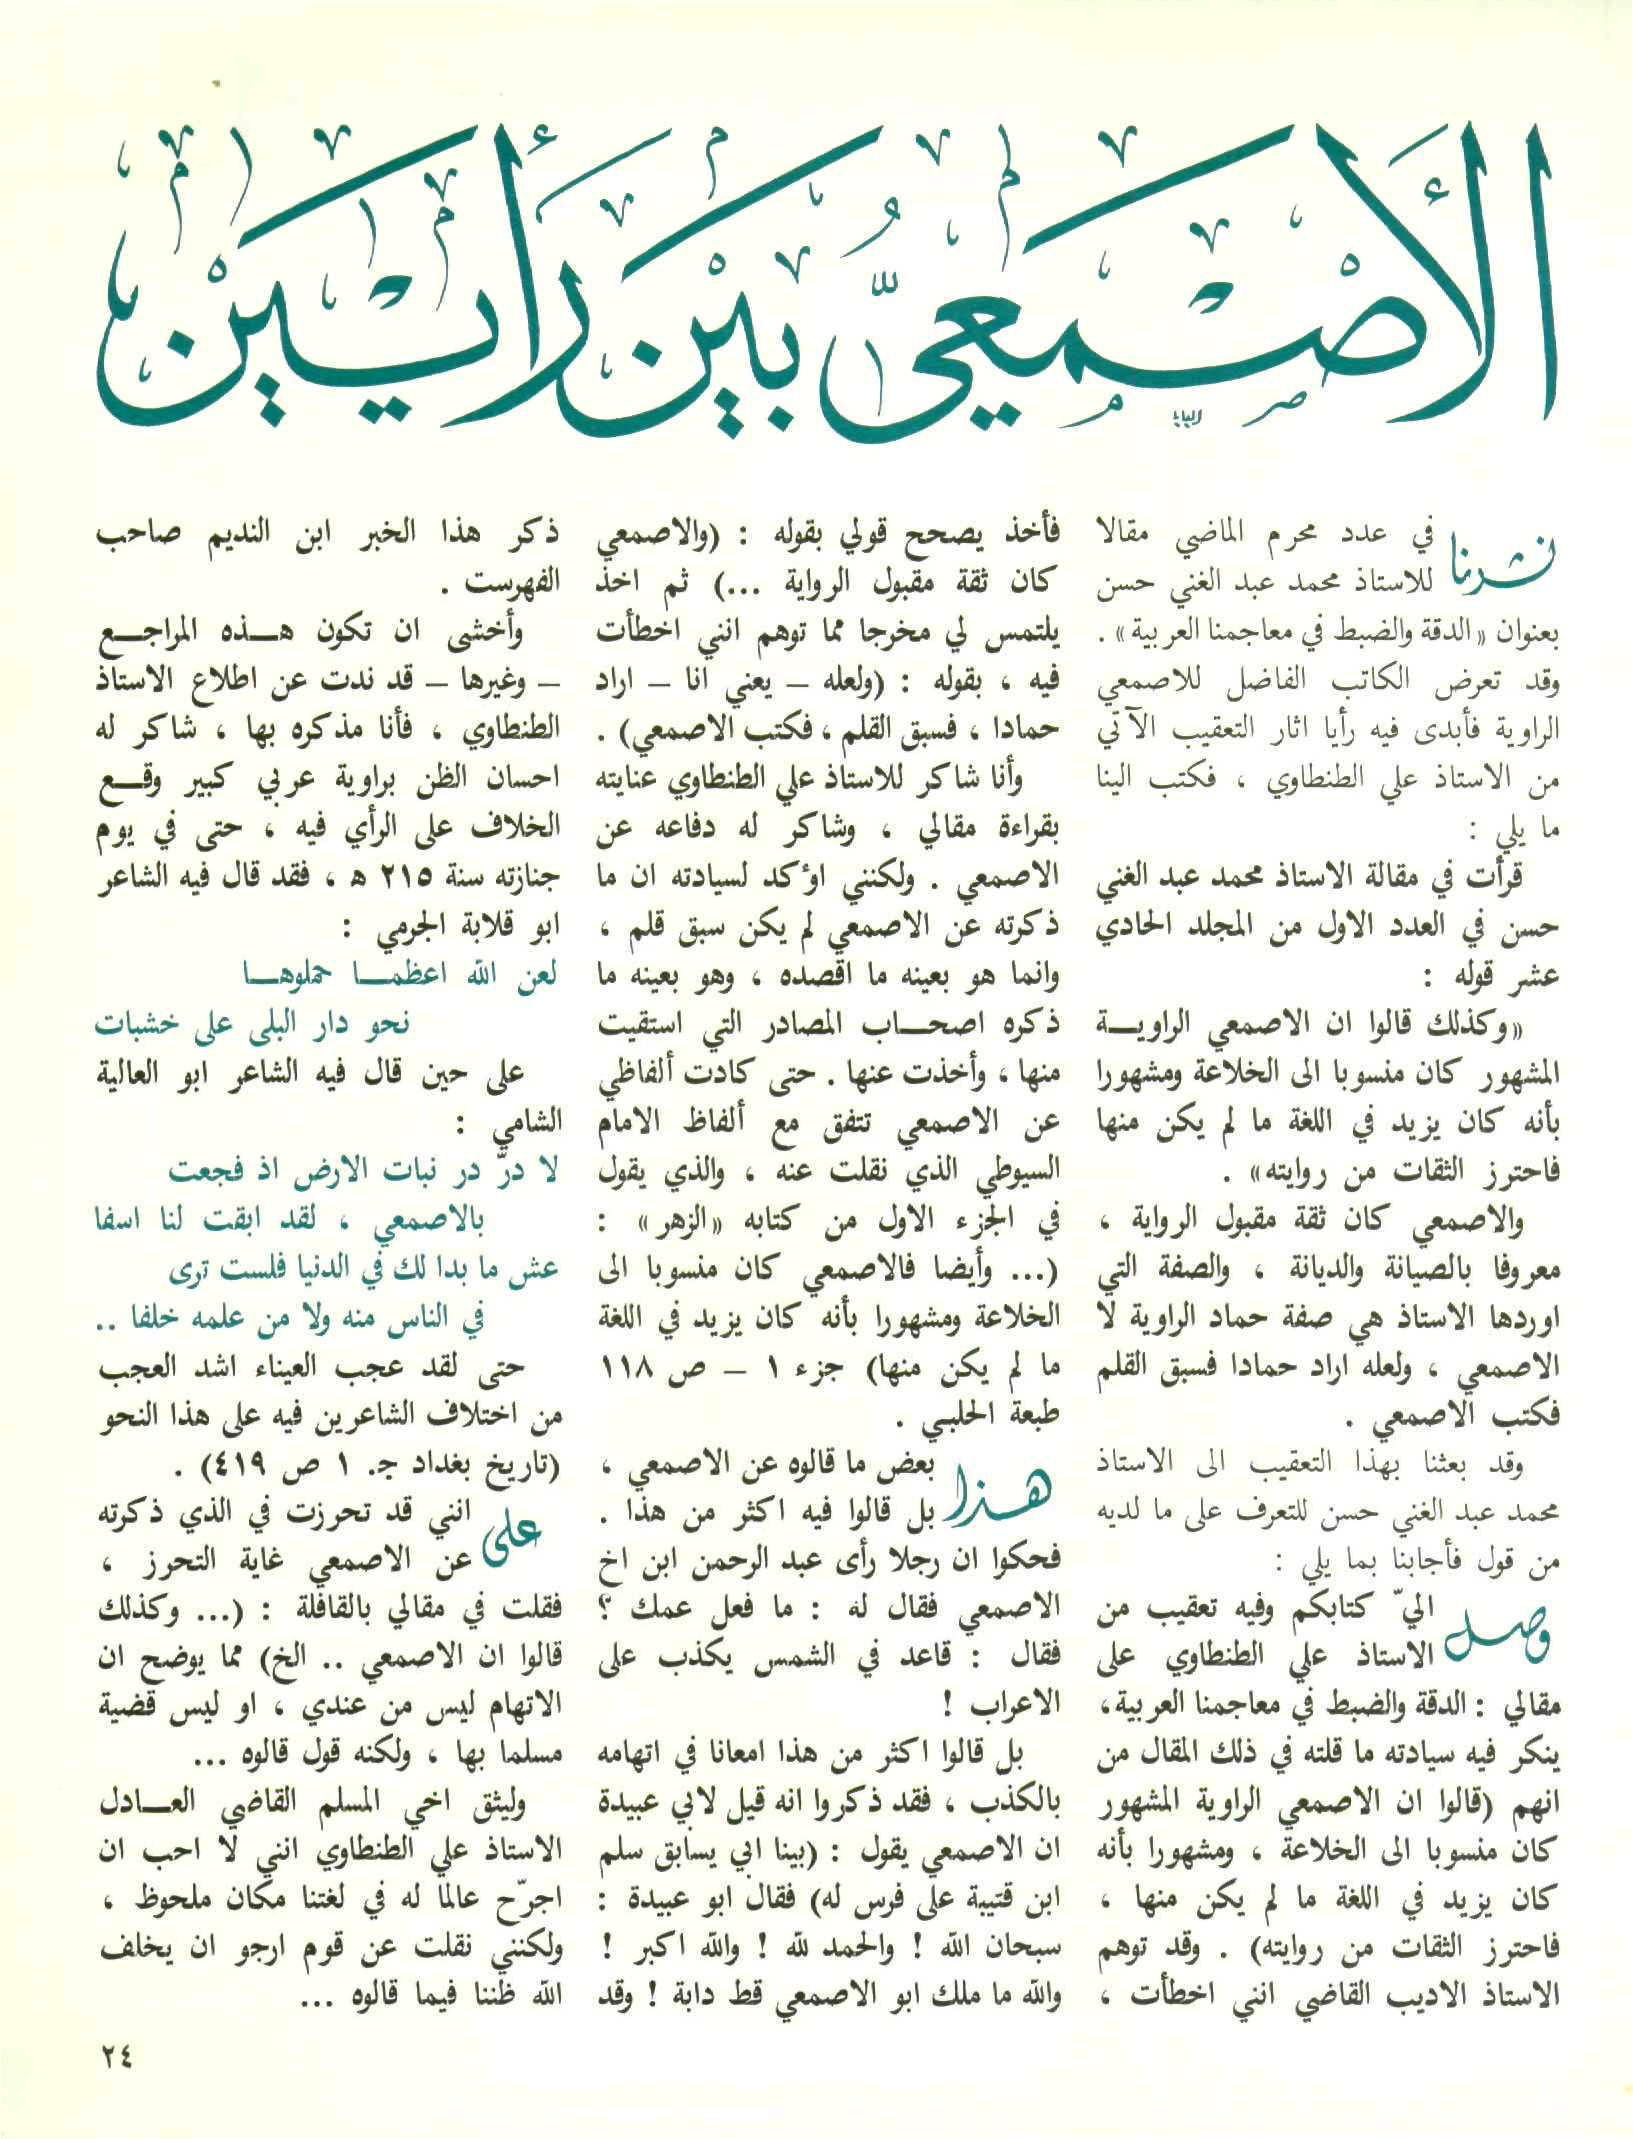 الأصمعيّ بين رأيين
نشرنا في عدد محرم الماضي مقالا
للاستاذ محمد عبد الغني حسن
بعنوان «الدقة والضبط في معاجمنا العربية» .
وقد تعرض الكاتب الفاضل للاصمعي
الراوية فأبدى فيه رأيا اثار التعقيب الآتي
من الاستاذ علي الطنطاوي ، فكتب الينا
ما يلي :
قرأت في مقالة الاستاذ محمد عبد الغني
حسن في العدد الاول من المجلد الحادي
عشر قوله :
«وكذلك قالوا ان الاصمعي الراويـــة
المشهور كان منسوبا الى الخلاعة ومشهورا
بأنه كان يزيد في اللغة ما لم يكن منها
فاحترز الثقات من روايته» .
والاصمعي كان ثقة مقبول الرواية ،
معروفا بالصيانة والديانة ، والصفة التي
اوردها الاستاذ هي صفة حماد الراوية لا
الاصمعي ، ولعله اراد حمادا فسبق القلم
فكتب الاصمعي .
وقد بعثنا بهذا التعقيب الى الاستاذ
محمد عبد الغني حسن للتعرف على ما لديه
من قول فأجابنا بما يلي :
وصل اليّ كتابكم وفيه تعقيب من
الاستاذ علي الطنطاوي على
مقالي : الدقة والضبط في معاجمنا العربية،
ينكر فيه سيادته ما قلته في ذلك المقال من
انهم (قالوا ان الاصمعي الراوية المشهور
كان منسوبا الى الخلاعة ، ومشهورا بأنه
كان يزيد في اللغة ما لم يكن منها ،
فاحترز الثقات من روايته) . وقد توهم
الاستاذ الاديب القاضي انني اخطأت ،
فأخذ يصحح قولي بقوله : (والاصمعي
كان ثقة مقبول الرواية ...) ثم اخذ
يلتمس لي مخرجا مما توهم انني اخطأت
فيه ، بقوله : (ولعله – يعني انا – اراد
حمادا ، فسبق القلم ، فكتب الاصمعي) .
وأنا شاكر للاستاذ علي الطنطاوي عنايته
بقراءة مقالي ، وشاكر له دفاعه عن
الاصمعي . ولكنني اؤكد لسيادته ان ما
ذكرته عن الاصمعي لم يكن سبق قلم ،
وانما هو بعينه ما اقصده ، وهو بعينه ما
ذكره اصحــاب المصادر التي استقيت
منها ، وأخذت عنها . حتى كادت ألفاظي
عن الاصمعي تتفق مع ألفاظ الامام
السيوطي الذي نقلت عنه ، والذي يقول
في الجزء الاول من كتابه «الزهر» :
(... وأيضا فالاصمعي كان منسوبا الى
الخلاعة ومشهورا بأنه كان يزيد في اللغة
ما لم يكن منها) جزء ١ – ص ١١٨
طبعة الحلبي .
هذا بعض ما قالوه عن الاصمعي ،
بل قالوا فيه اكثر من هذا .
فحكوا ان رجلا رأى عبد الرحمن ابن اخ
الاصمعي فقال له : ما فعل عمك ؟
فقال : قاعد في الشمس يكذب على
الاعراب !
بل قالوا اكثر من هذا امعانا في اتهامه
بالكذب ، فقد ذكروا انه قيل لابي عبيدة
ان الاصمعي يقول : (بينا ابي يسابق سلم
ابن قتيبة على فرس له) فقال ابو عبيدة :
سبحان الله ! والحمد لله ! والله اكبر !
والله ما ملك ابو الاصمعي قط دابة ! وقد
ذكر هذا الخبر ابن النديم صاحب
الفهرست .
وأخشى ان تكون هــذه المراجــع
– وغيرها – قد ندت عن اطلاع الاستاذ
الطنطاوي ، فأنا مذكره بها ، شاكر له
احسان الظن براوية عربي كبير وقــع
الخلاف على الرأي فيه ، حتى في يوم
جنازته سنة ٢١٥ ه ، فقد قال فيه الشاعر
ابو قلابة الجرمي :
لعن الله اعظمــا حملوهــا
نحو دار البلى على خشبات
على حين قال فيه الشاعر ابو العالية
الشامي :
لا درّ در نبات الارض اذ فجعت
بالاصمعي ، لقد ابقت لنا اسفا
عش ما بدا لك في الدنيا فلست ترى
في الناس منه ولا من علمه خلفا ..
حتى لقد عجب العيناء اشد العجب
من اختلاف الشاعرين فيه على هذا النحو
(تاريخ بغداد جـ. ١ ص ٤١٩) .
على انني قد تحرزت في الذي ذكرته
عن الاصمعي غاية التحرز ،
فقلت في مقالي بالقافلة : (... وكذلك
قالوا ان الاصمعي .. الخ) مما يوضح ان
الاتهام ليس من عندي ، او ليس قضية
مسلما بها ، ولكنه قول قالوه ...
وليثق اخي المسلم القاضي العــادل
الاستاذ علي الطنطاوي انني لا احب ان
اجرّح عالما له في لغتنا مكان ملحوظ ،
ولكنني نقلت عن قوم ارجو ان يخلف
الله ظننا فيما قالوه ...
٢٤